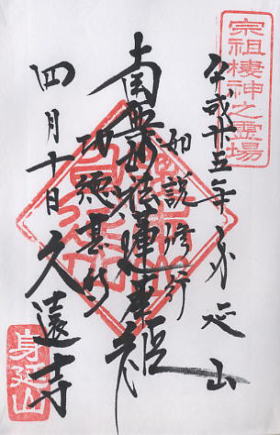 宗祖棲神之霊場
平成廿五年 身延山
如説修行
南無妙法蓮華経
功徳甚多
四月十日 久遠寺
身延山